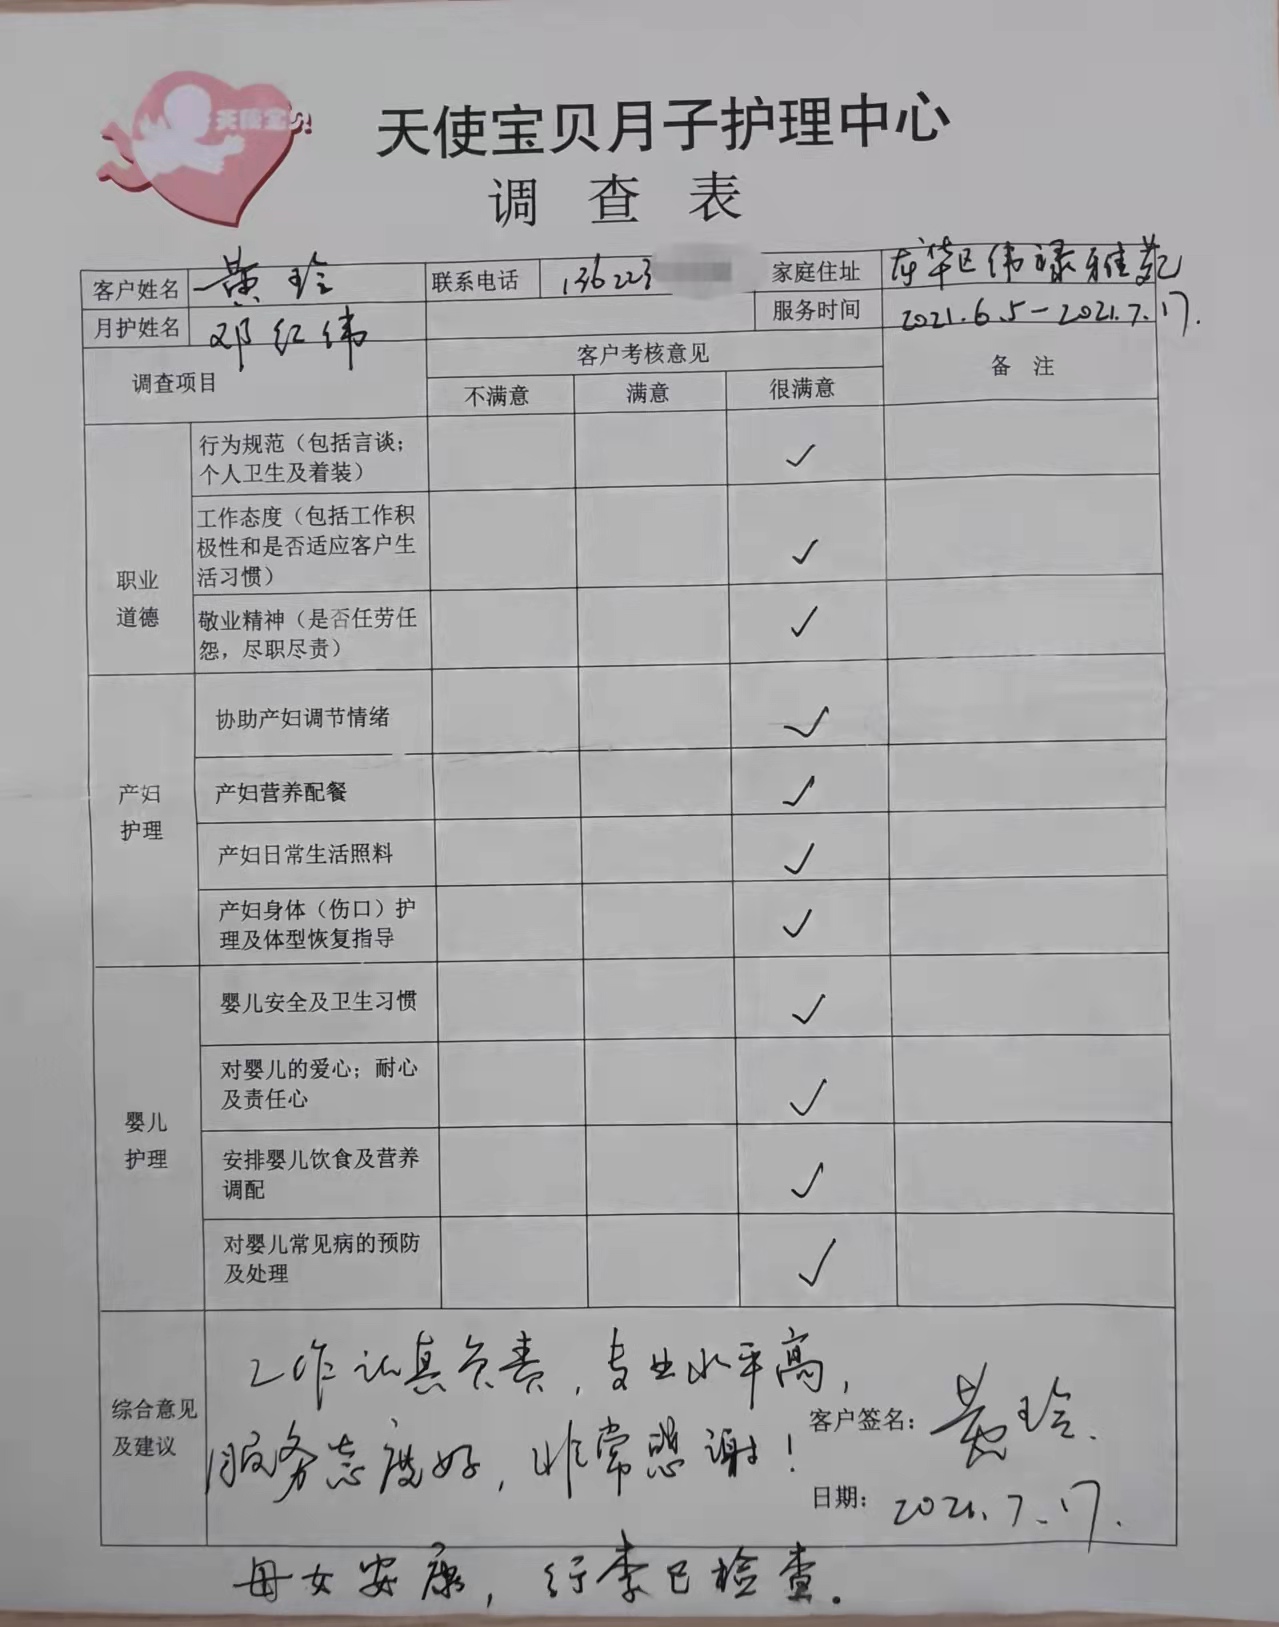 天使宝贝
天使宝贝月子护理中心
调查表
客户姓名 黄玲 联系电话 136223 家庭住址 龙华区伟禄雅苑
月护姓名 邓红纬 服务时间 2021.6.5-2021.7.17.
调查项目 客户考核意见 备注
不满意 满意 很满意
职业
道德
行为规范（包括言谈；
个人卫生及着装） ✓
工作态度（包括工作积
极性和是否适应客户生
活习惯） ✓
敬业精神（是否任劳任
怨，尽职尽责） ✓
产妇
护理
协助产妇调节情绪 ✓
产妇营养配餐 ✓
产妇日常生活照料 ✓
产妇身体（伤口）护
理及体型恢复指导 ✓
婴儿
护理
婴儿安全及卫生习惯 ✓
对婴儿的爱心；耐心
及责任心 ✓
安排婴儿饮食及营养
调配 ✓
对婴儿常见病的预防
及处理 ✓
综合意见
及建议
工作认真负责，专业水平高，
服务态度好，非常感谢！
客户签名：黄玲.
日期：2021.7.17.
母女安康，行李已检查.